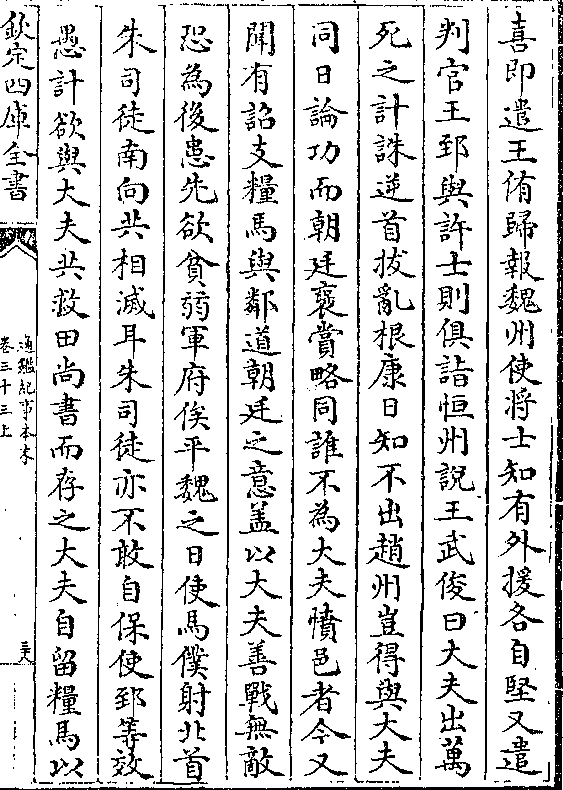 喜即遣王侑歸報魏州使將士知有外援各自堅又遣
判官王郅與許士則俱詣恒州說王武俊曰大夫出萬
死之計誅逆首拔亂根康日知不出趙州豈得與大夫
同日論功而朝廷褒賞略同誰不為大夫憤邑者今又
聞有詔支糧馬與鄰道朝廷之意盖以大夫善戰無敵
恐為後患先欲貧弱軍府俟平魏之日使馬僕射北首
朱司徒南向共相滅耳朱司徒亦不敢自保使郅等效
愚計欲與大夫共救田尚書而存之大夫自留糧馬以
欽定四庫全書
通鑑紀事本末
卷三十三上